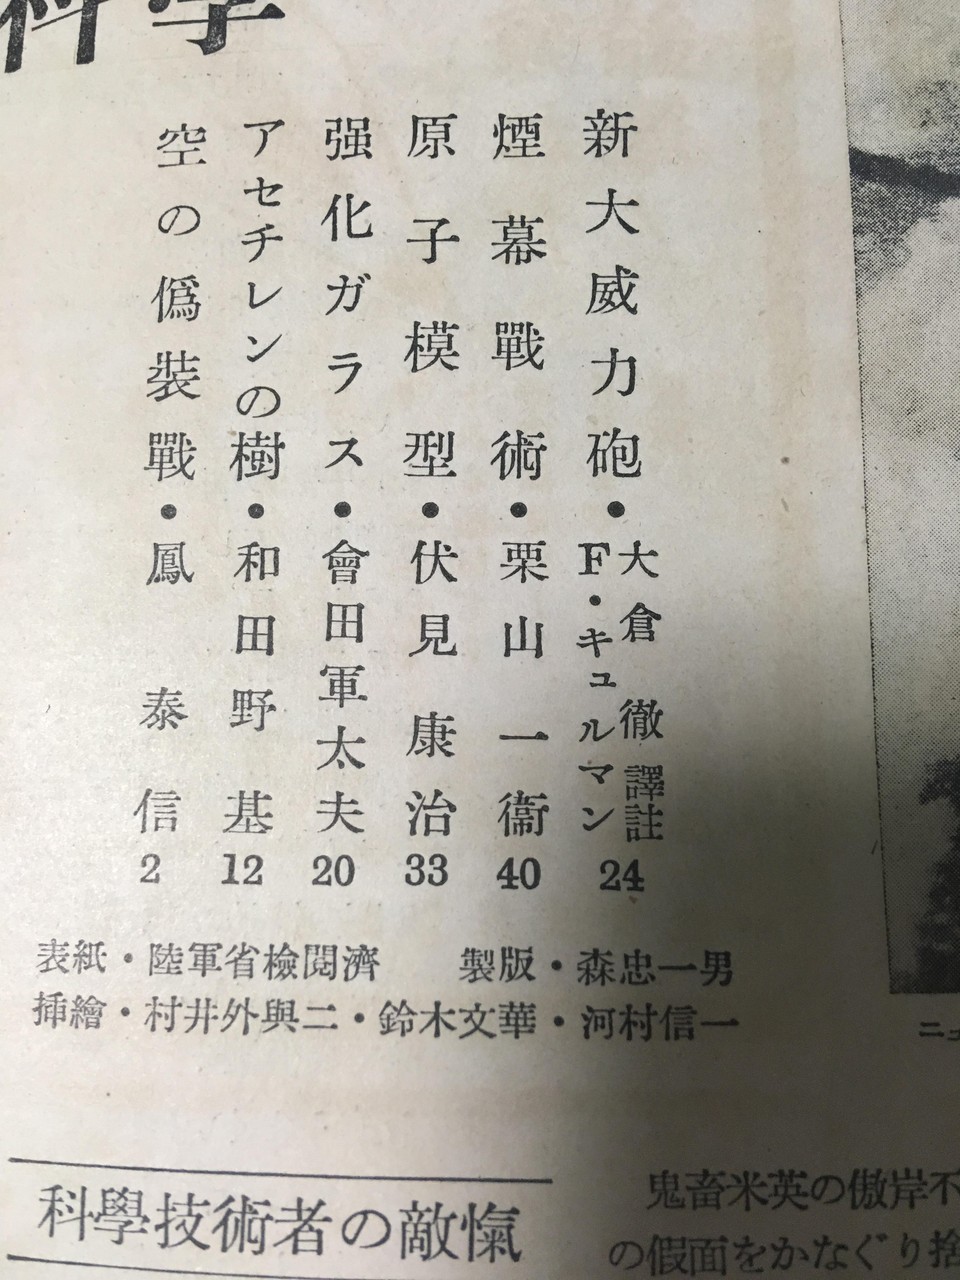 科學
新大威力砲・大倉徹譯註 F・キュルマン 24
煙幕戰術・栗山一衞 40
原子模型・伏見康治 33
强化ガラス・會田軍太夫 20
アセチレンの樹・和田野基 12
空の僞裝戰・鳳泰信 2
表紙・陸軍省檢閱濟 製版・森忠一男
揷繪・村井外與二・鈴木文華・河村信一
科學技術者の敵愾
鬼畜米英の傲岸不
の假面をかなぐり捨